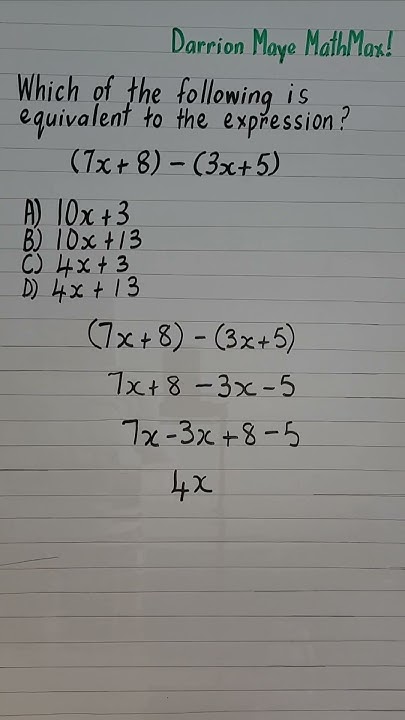 Darrion Maye MathMax!
Which of the following is
equivalent to the expression?
(7x + 8) – (3x+5)
A) 10x+3
B) 10x+13
C) 4x+3
D) 4x + 13
(7x+8) – (3x+5)
7x+8 – 3x – 5
7x – 3x + 8 – 5
4x